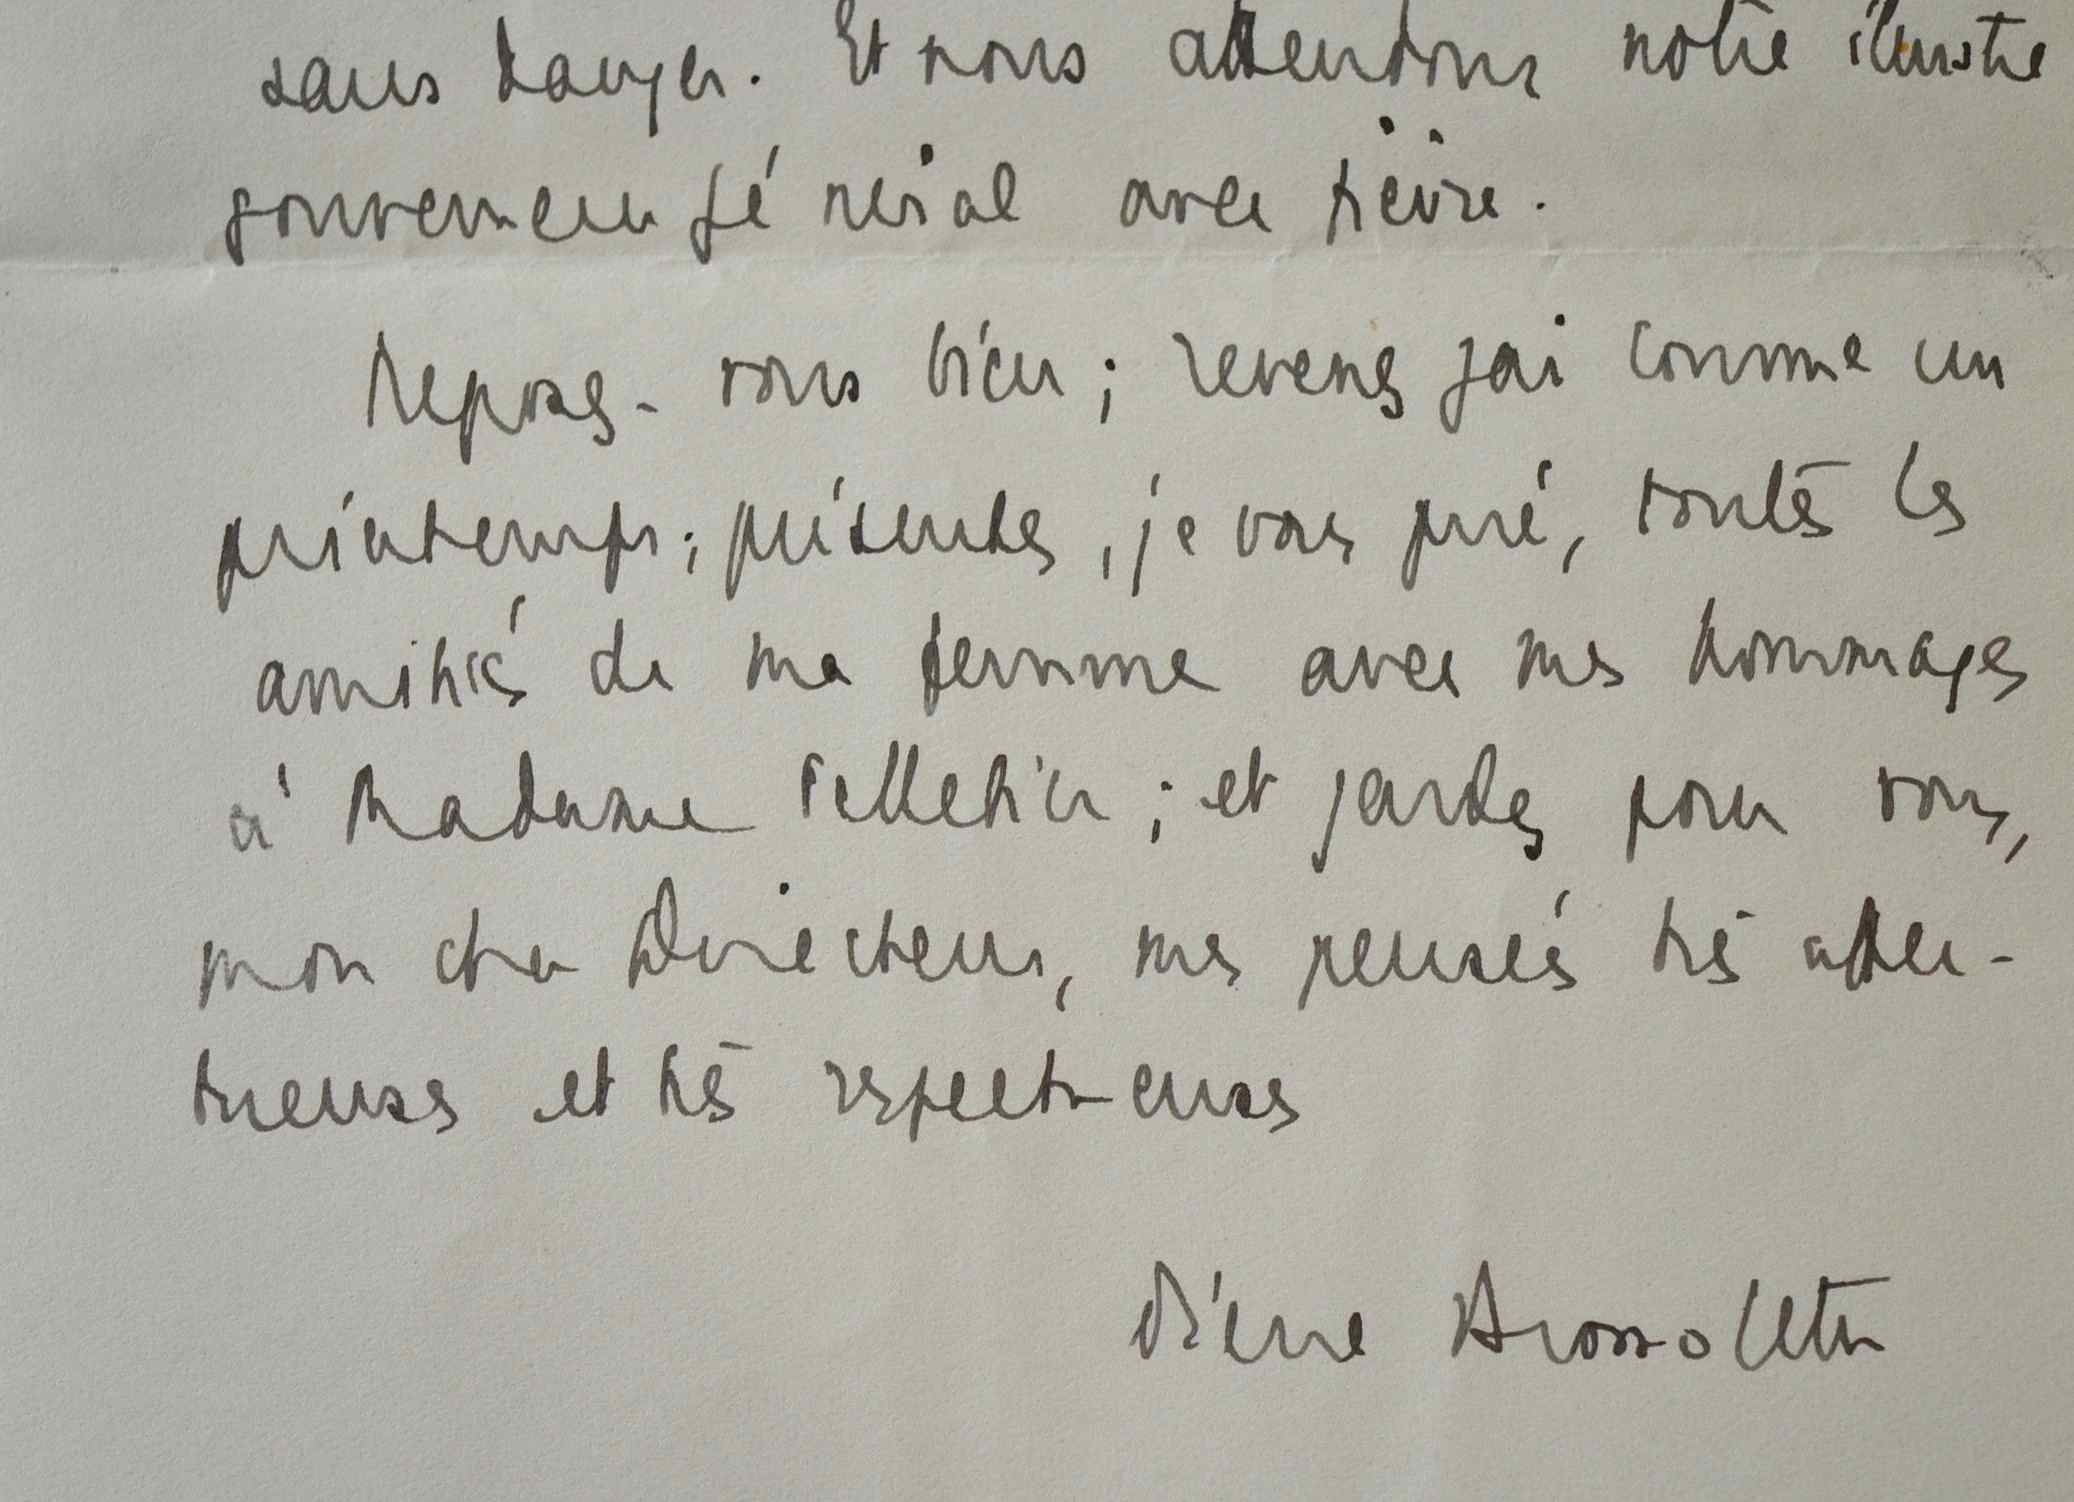 sans danger. Et nous attendons notre illustre
gouverneur général avec fièvre.
Reposez-vous bien ; revenez gai comme un
printemps ; présentez, je vous prie, toutes les
amitiés de ma femme avec mes hommages
à Madame Pelletier ; et gardez pour vous,
mon cher Directeur, mes pensées très affec-
tueuses et très respectueuses
Pierre Brossolette